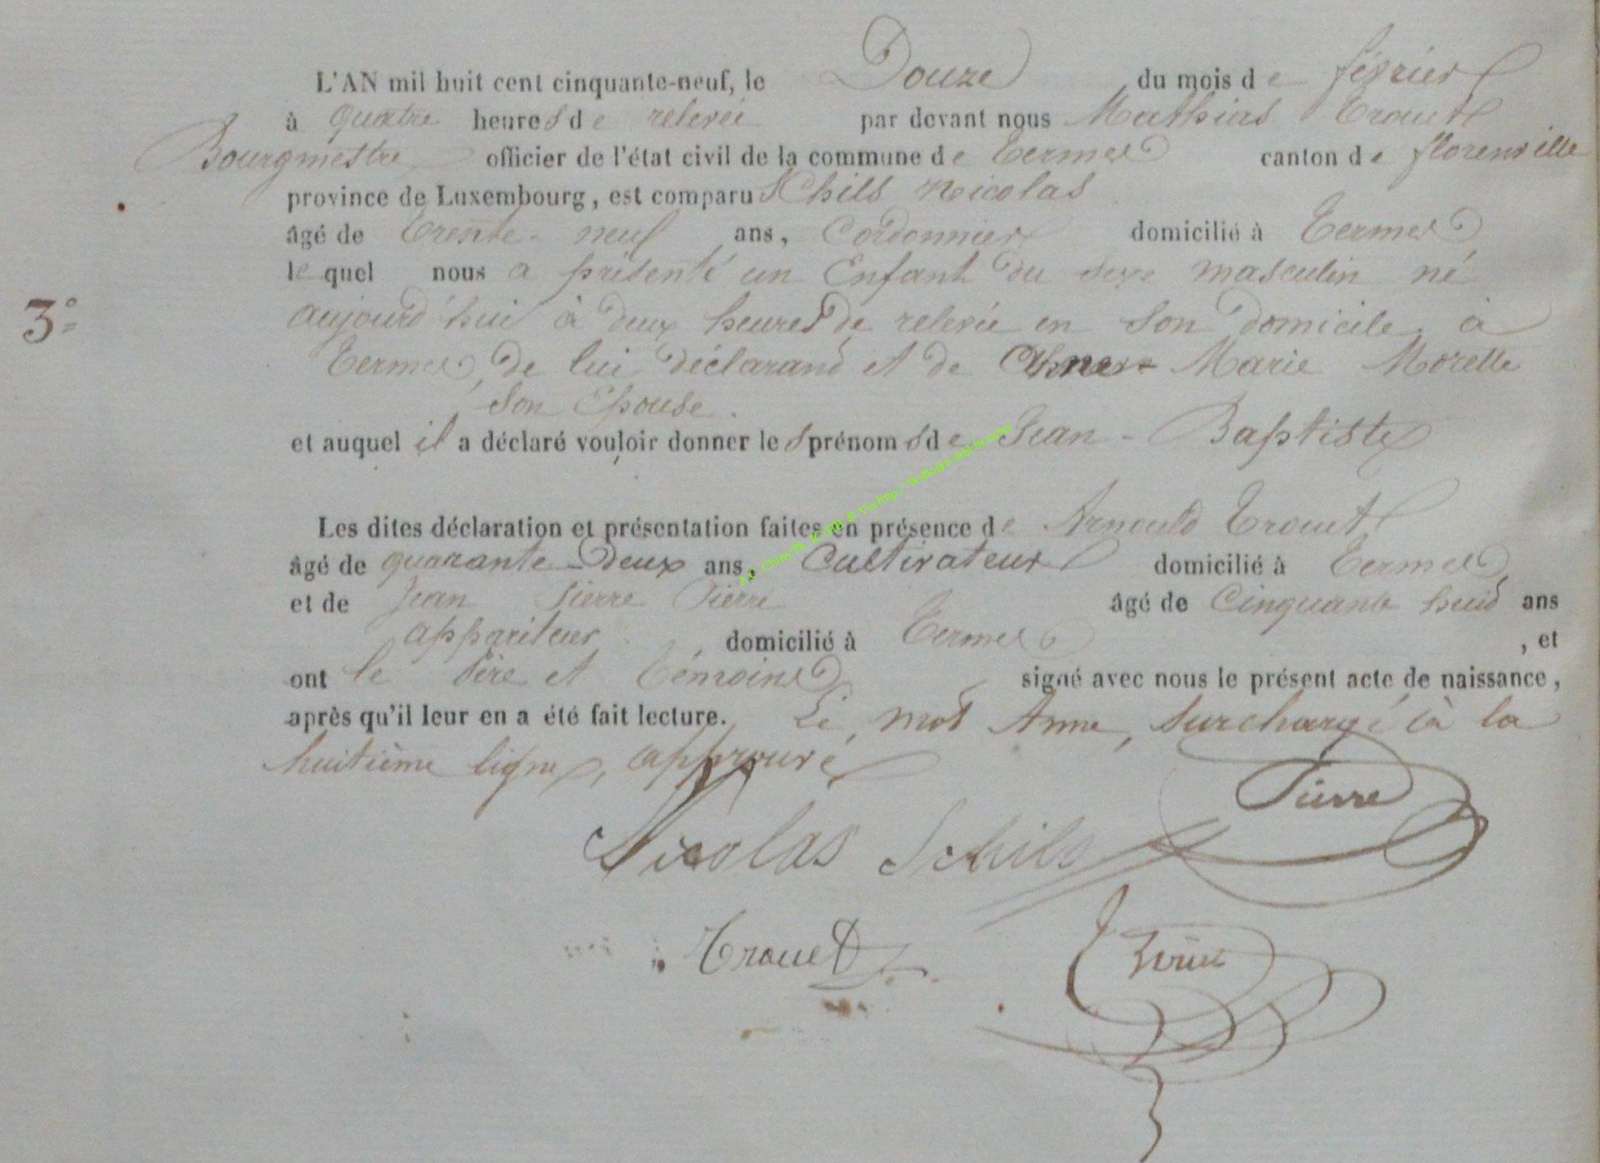 L'AN mil huit cent cinquante-neuf, le Douze du mois de février
à quatre heures de relevée par devant nous Mathias Trouet
Bourgmestre officier de l'état civil de la commune de Termes canton de florenville
province de Luxembourg, est comparu Schils Nicolas
âgé de Trente-neuf ans, Cordonnier domicilié à Termes
le quel nous a présenté un Enfant du sexe masculin né
3° aujourd'hui à deux heures de relevée en son domicile à
Termes, de lui déclarand et de Anne Marie Morette
son Epouse.
et auquel il a déclaré vouloir donner les prénoms de Jean-Baptiste
Les dites déclaration et présentation faites en présence de Arnould Trouet
âgé de quarante Deux ans, Cultivateur domicilié à Termes
et de Jean Pierre Pierre âgé de Cinquante huid ans
appariteur domicilié à Termes, et
ont le Père et témoins signé avec nous le présent acte de naissance,
après qu'il leur en a été fait lecture. Le mot Anne, surchargé à la
huitième ligne, approuvé
Pierre
Nicolas Schils
Trouet